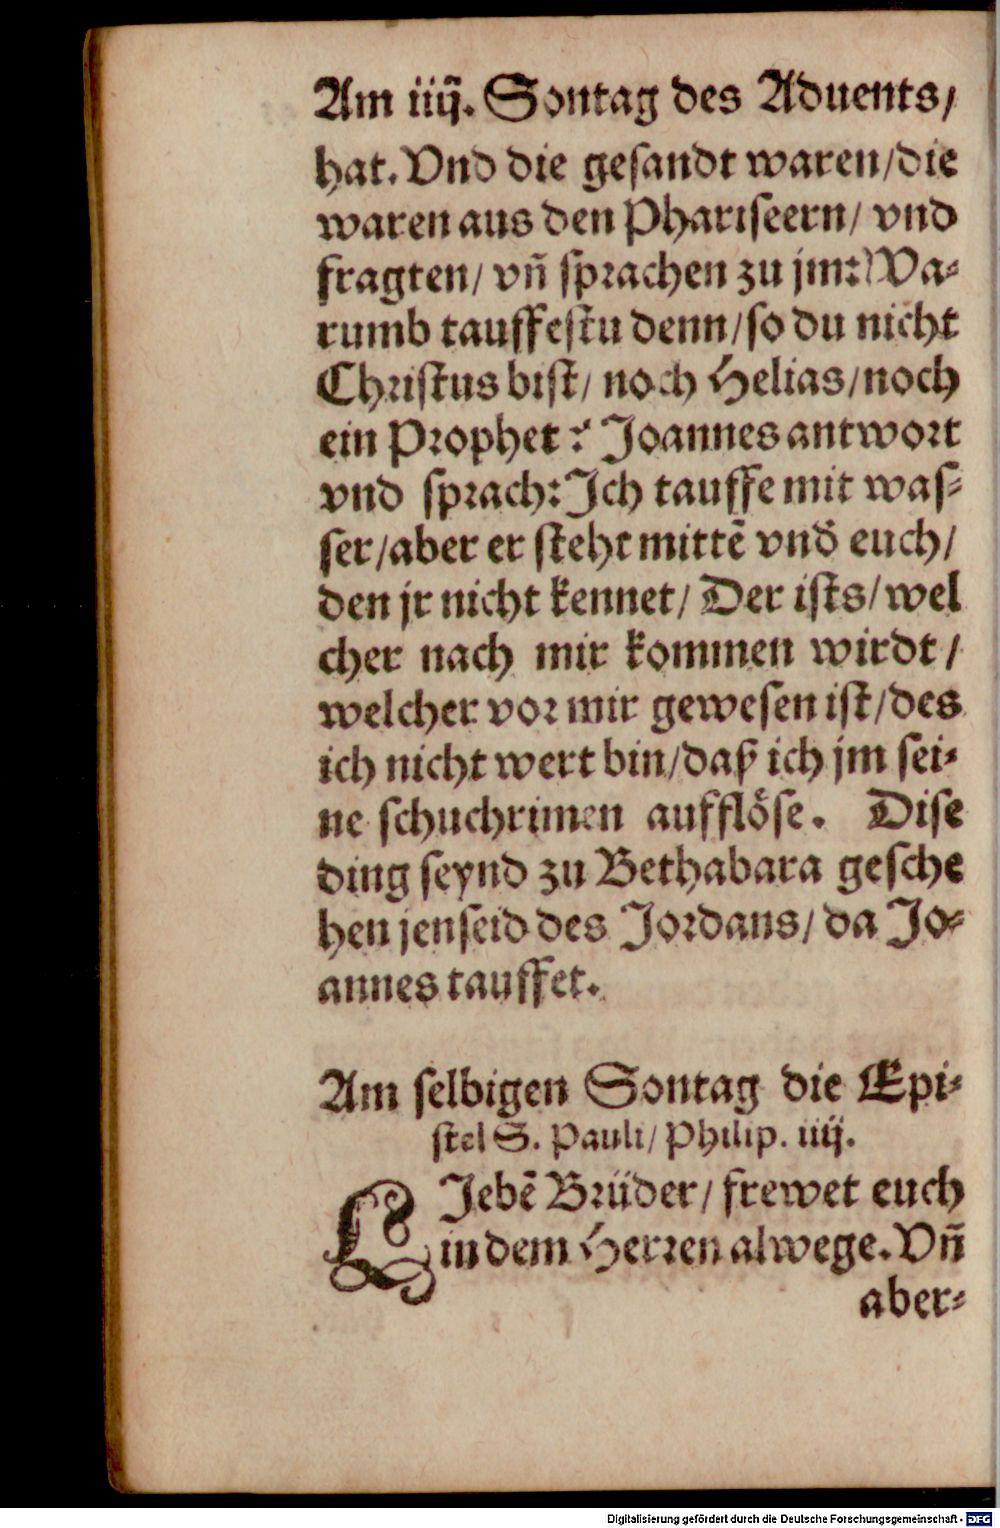 Am iiij. Sontag des Aduents/
hat. Vnd die gesandt waren/die
waren aus den Phariseern/ vnd
fragten/ vñ sprachen zu jm: Wa-
rumb tauffestu denn/so du nicht
Christus bist/ noch Helias/noch
ein Prophet? Joannes antwort
vnd sprach: Ich tauffe mit was-
ser/aber er steht mittẽ vnd̕ euch/
den jr nicht kennet/ Der ists/wel
cher nach mir kommen wirdt/
welcher vor mir gewesen ist/des
ich nicht wert bin/daß ich jm sei-
ne schuchrimen aufflöse. Dise
ding seynd zu Bethabara gesche
hen jenseid des Jordans/ da Jo-
annes tauffet.
Am selbigen Sontag die Epi-
stel S. Pauli/ Philip. iiij.
LIebẽ Brüder/ frewet euch
in dem Herren alwege. Vñ
aber-
Digitalisierung gefördert durch die Deutsche Forschungsgemeinschaft - DFG